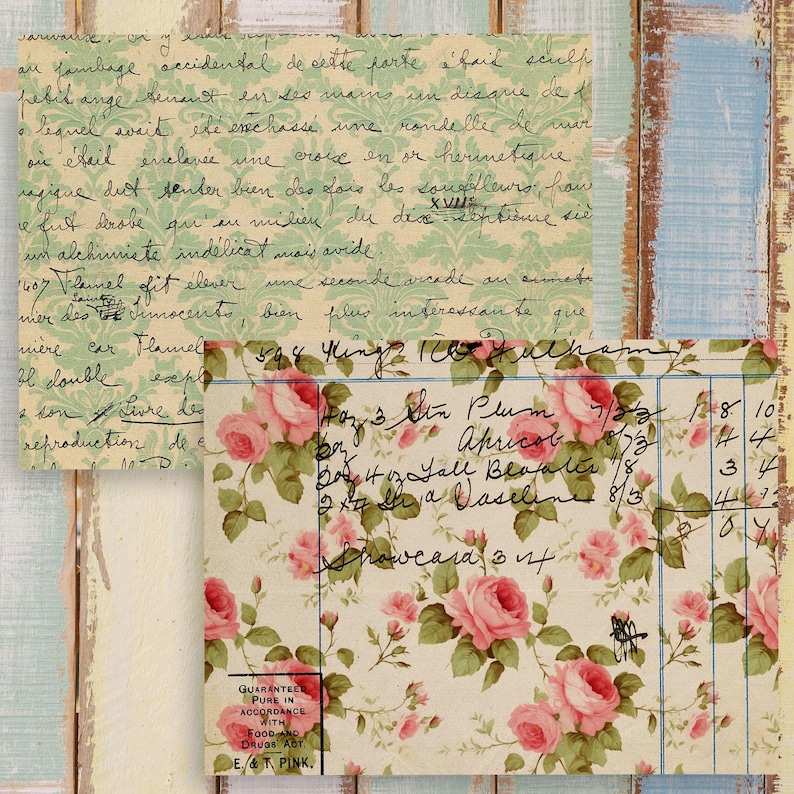 au jambage occidental de cette porte était sculp
petit ange tenant en ses mains un disque de
lequel avait été enchassé une rondelle de mar
où était enclavée une croix en or hermetique
magique dut tenter bien des fois les souffleurs, pour
XVIIe
fut derobe qu'au milieu du dix-septieme siè
un alchimiste indélicat mais avide.
1407 Flamel fit élever une seconde arcade au
Saints
nier des Innocents, bien plus intéressante que
nière car Flamel
double expl
son Livre des
reproduction de
598 Kings Rd Fulham
4oz 3 Sin Plum 7/3 1 8 10
Apricot 4 4
2oz 4 oz Tall 1/8 3 4
2 x 4 Vaseline 8/3 4
0
Showcard 3 4
GUARANTEED
PURE IN
ACCORDANCE
WITH
FOOD AND
DRUGS ACT.
E. & T. PINK.